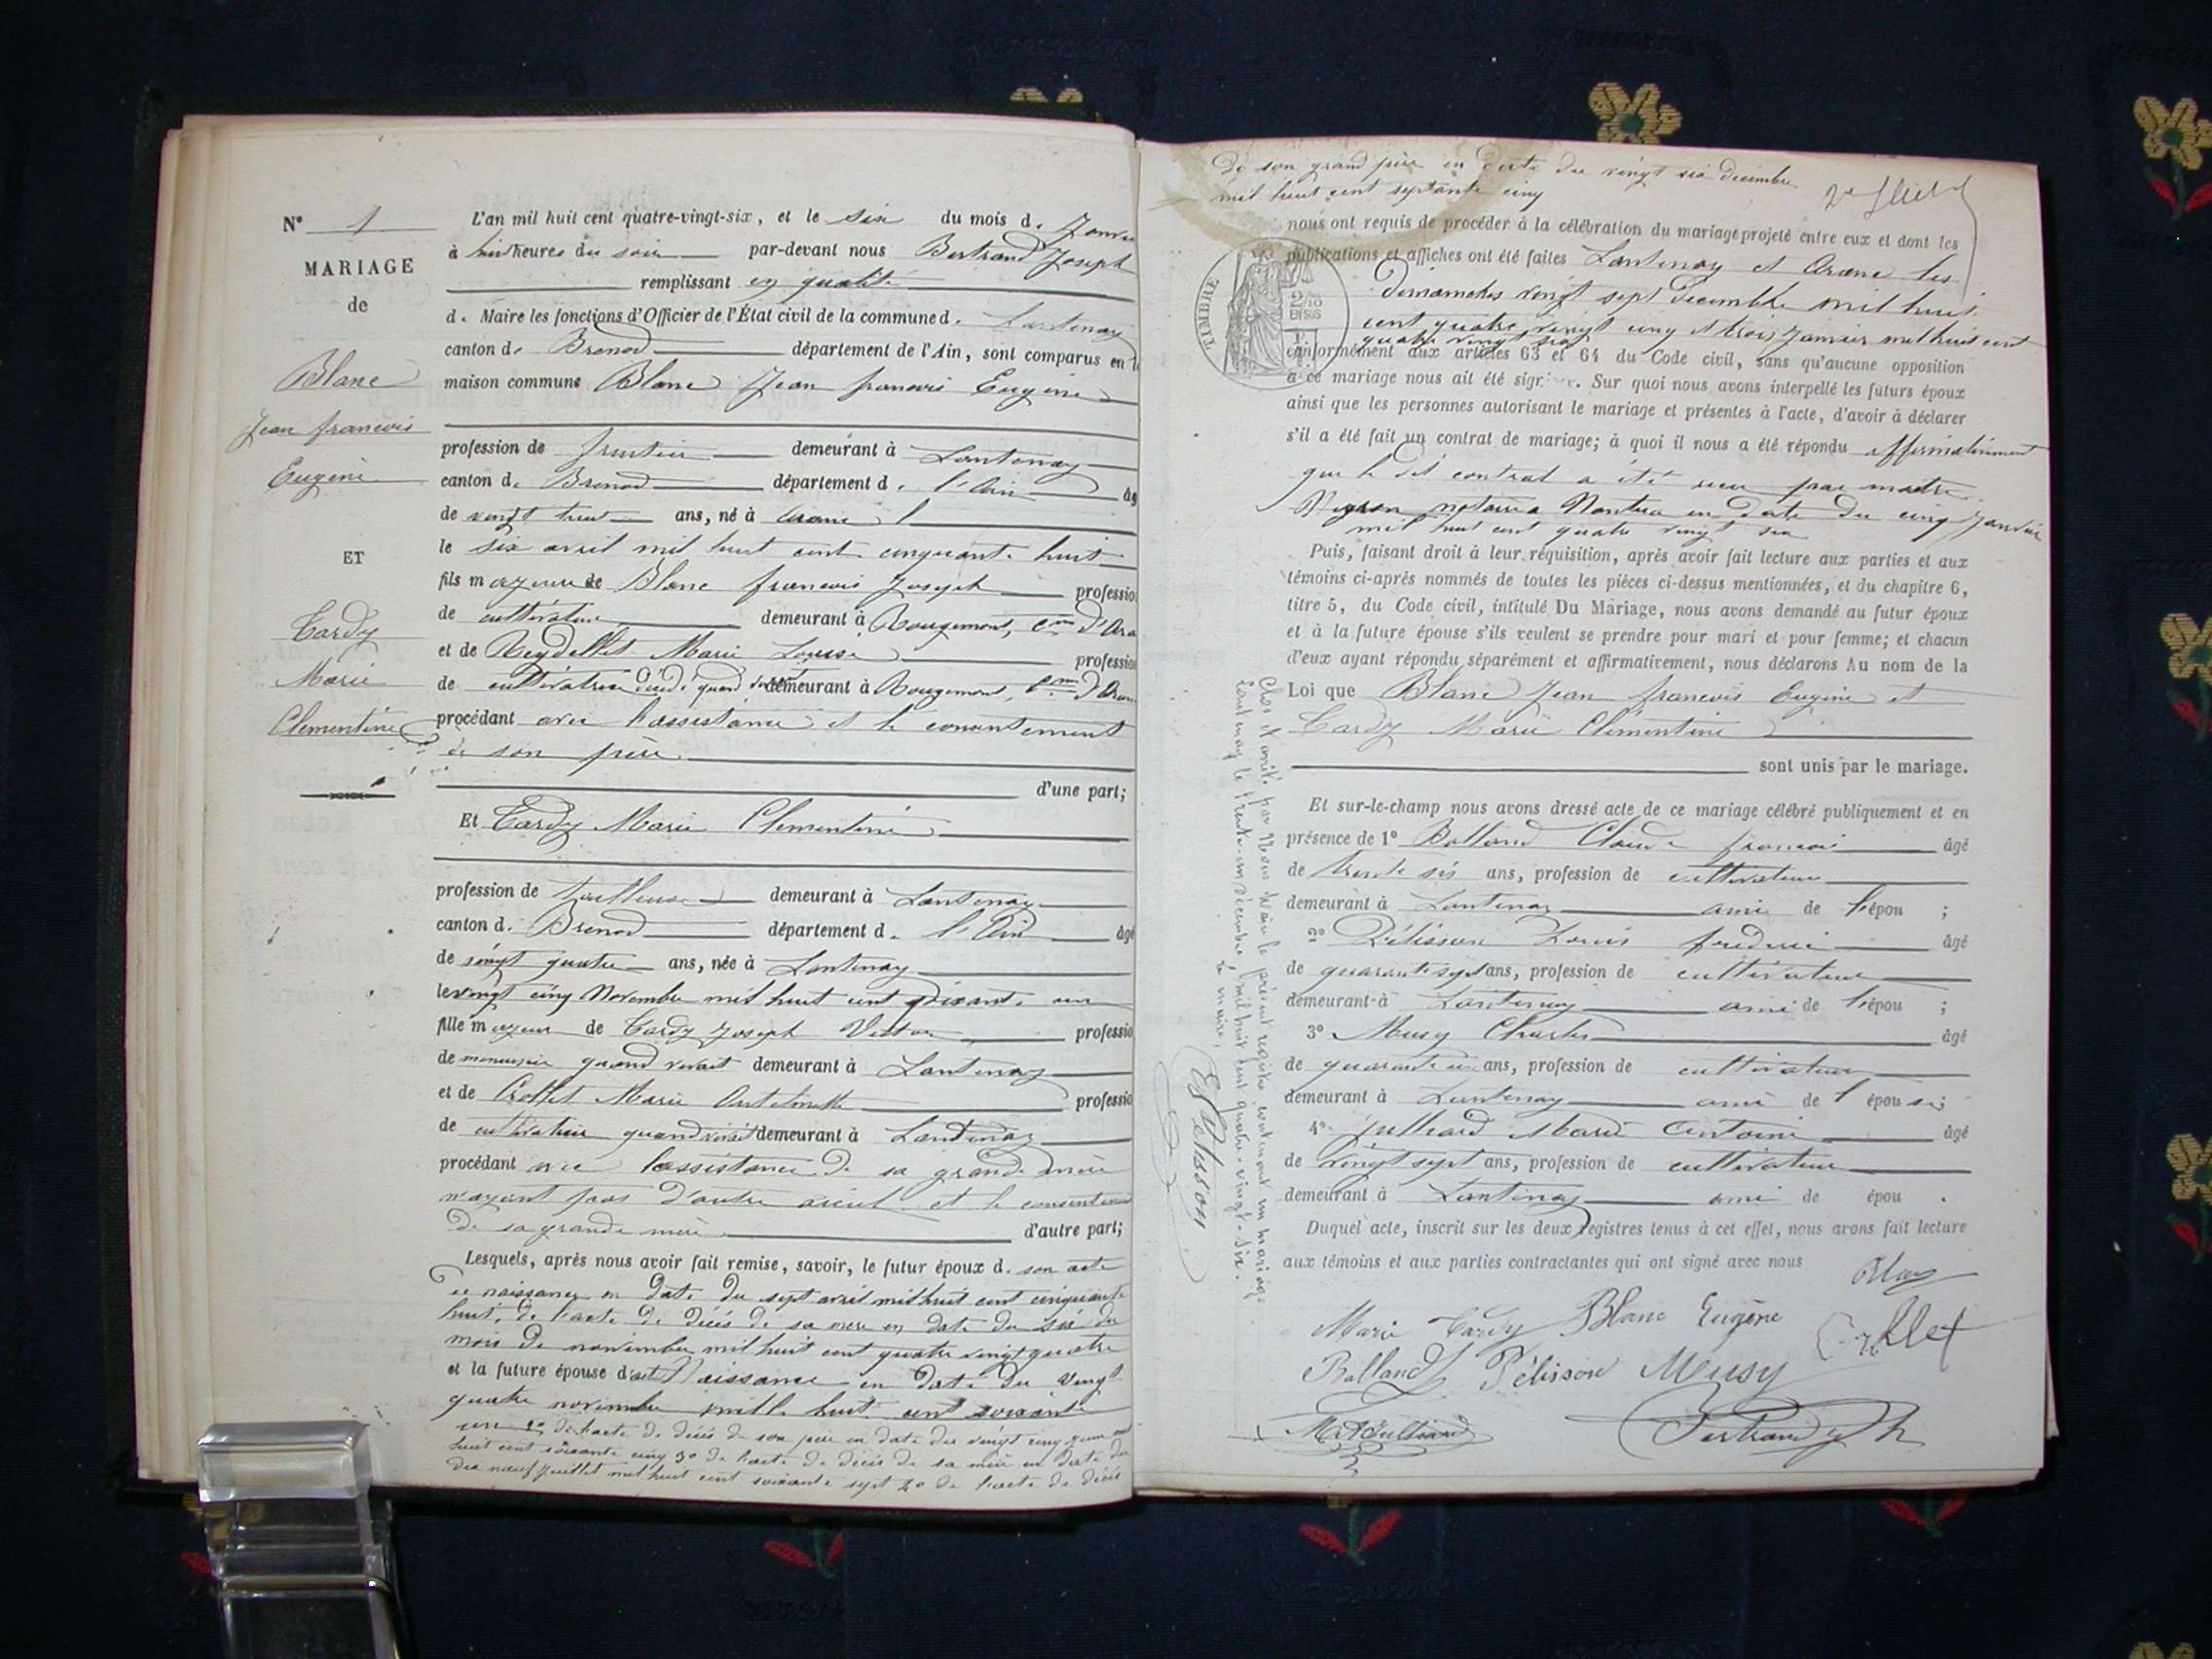 N° 1
MARIAGE
de
Blanc
Jean francois
Eugène
ET
Tardy
Marie
Clementine
L'an mil huit cent quatre-vingt-six, et le six du mois d. Janvier
à huit heures du soir par-devant nous Bertrand Joseph
remplissant en qualité
d. Maire les fonctions d'Officier de l'État civil de la commune d. Lantenay
canton d. Brenod département de l'Ain, sont comparus en la
maison commune Blanc Jean francois Eugène
profession de fruitier demeurant à Lantenay
canton d. Brenod département d. l'Ain âg
de vingt huit ans, né à Arane
le six avril mil huit cent cinquante huit
fils majeur de Blanc francois Joseph professio
de cultivateur demeurant à Rougemont, Cne d'Ara
et de Reydellet Marie Louise profession
de cultivatrice quand vivait demeurant à Rougemont, Cne d'Aran
procédant avec l'assistance et le consentement
de son père
d'une part;
Et Tardy Marie Clementine
profession de tailleuse demeurant à Lantenay
canton d. Brenod département d. l'Ain âgé
de vingt quatre ans, née à Lantenay
le vingt cinq Novembre mil huit cent soixante un
fille majeur de Tardy Joseph Victor professio
de menuisier quand vivait demeurant à Lantenay
et de Crollet Marie Antelmette professio
de cultivatrice quand vivait demeurant à Lantenay
procédant avec l'assistance de sa grande mère
n'ayant pas d'autre aïeul et le consentement
de sa grande mère d'autre part;
Lesquels, après nous avoir fait remise, savoir, le futur époux d. son acte
de naissance en date du sept avril mil huit cent cinquante
huit, de l'acte de décès de sa mere en date du six du
mois de novembre mil huit cent quatre vingt quatre
et la future épouse d'acte Naissance en date du vingt
quatre novembre mille huit cent soixante
un 2° de l'acte de décès de son père en date du vingt cinq juin mil
huit cent soixante cinq 3° de l'acte de décès de sa mère en date du
dix neuf Juillet mil huit cent soixante sept 4° de l'acte de décès
De son grand père en date du vingt six decembre
mil huit cent septante cinq
TIMBRE
2/10
EN SUS
nous ont requis de procéder à la célébration du mariage projeté entre eux et dont les
publications et affiches ont été faites Lantenay et Arane les
dimanches vingt sept Décembre mil huit
cent quatre vingt cinq et trois Janvier mil huit cent
quatre vingt six
conformément aux articles 63 et 64 du Code civil, sans qu'aucune opposition
à ce mariage nous ait été sig. Sur quoi nous avons interpellé les futurs époux
ainsi que les personnes autorisant le mariage et présentes à l'acte, d'avoir à déclarer
s'il a été fait un contrat de mariage; à quoi il nous a été répondu affirmativement
que le dit contrat a été recu par maitre
notaire a Nantua en date du cinq Janvier
mil huit cent quatre vingt six
Puis, faisant droit à leur réquisition, après avoir fait lecture aux parties et aux
témoins ci-après nommés de toutes les pièces ci-dessus mentionnées, et du chapitre 6,
titre 5, du Code civil, intitulé Du Mariage, nous avons demandé au futur époux
et à la future épouse s'ils veulent se prendre pour mari et pour femme; et chacun
d'eux ayant répondu séparément et affirmativement, nous déclarons Au nom de la
Loi que Blanc Jean francois Eugène et
Tardy Marie Clémentine
sont unis par le mariage.
Et sur-le-champ nous avons dressé acte de ce mariage célébré publiquement et en
présence de 1° Balland Claude francois âgé
de trente six ans, profession de cultivateur
demeurant à Lantenay ami de l'épou ;
2° Pélisson Louis frederic âgé
de quarante sept ans, profession de cultivateur
demeurant à Lantenay ami de l'épou ;
3° Musy Charles âgé
de quarante un ans, profession de cultivateur
demeurant à Lantenay ami de l épouse;
4° Julliard Marie Antoine âgé
de vingt sept ans, profession de cultivateur
demeurant à Lantenay ami de épou .
Duquel acte, inscrit sur les deux registres tenus à cet effet, nous avons fait lecture
aux témoins et aux parties contractantes qui ont signé avec nous
Marie Tardy Blanc Eugène
Balland Pélisson Musy
M.A Julliard Bertrand
Clos et arrêté par Nous Maire le présent registre contenant un mariage
Lantenay le trente un décembre mil huit cent quatre-vingt-six.
Le maire,
Pélisson